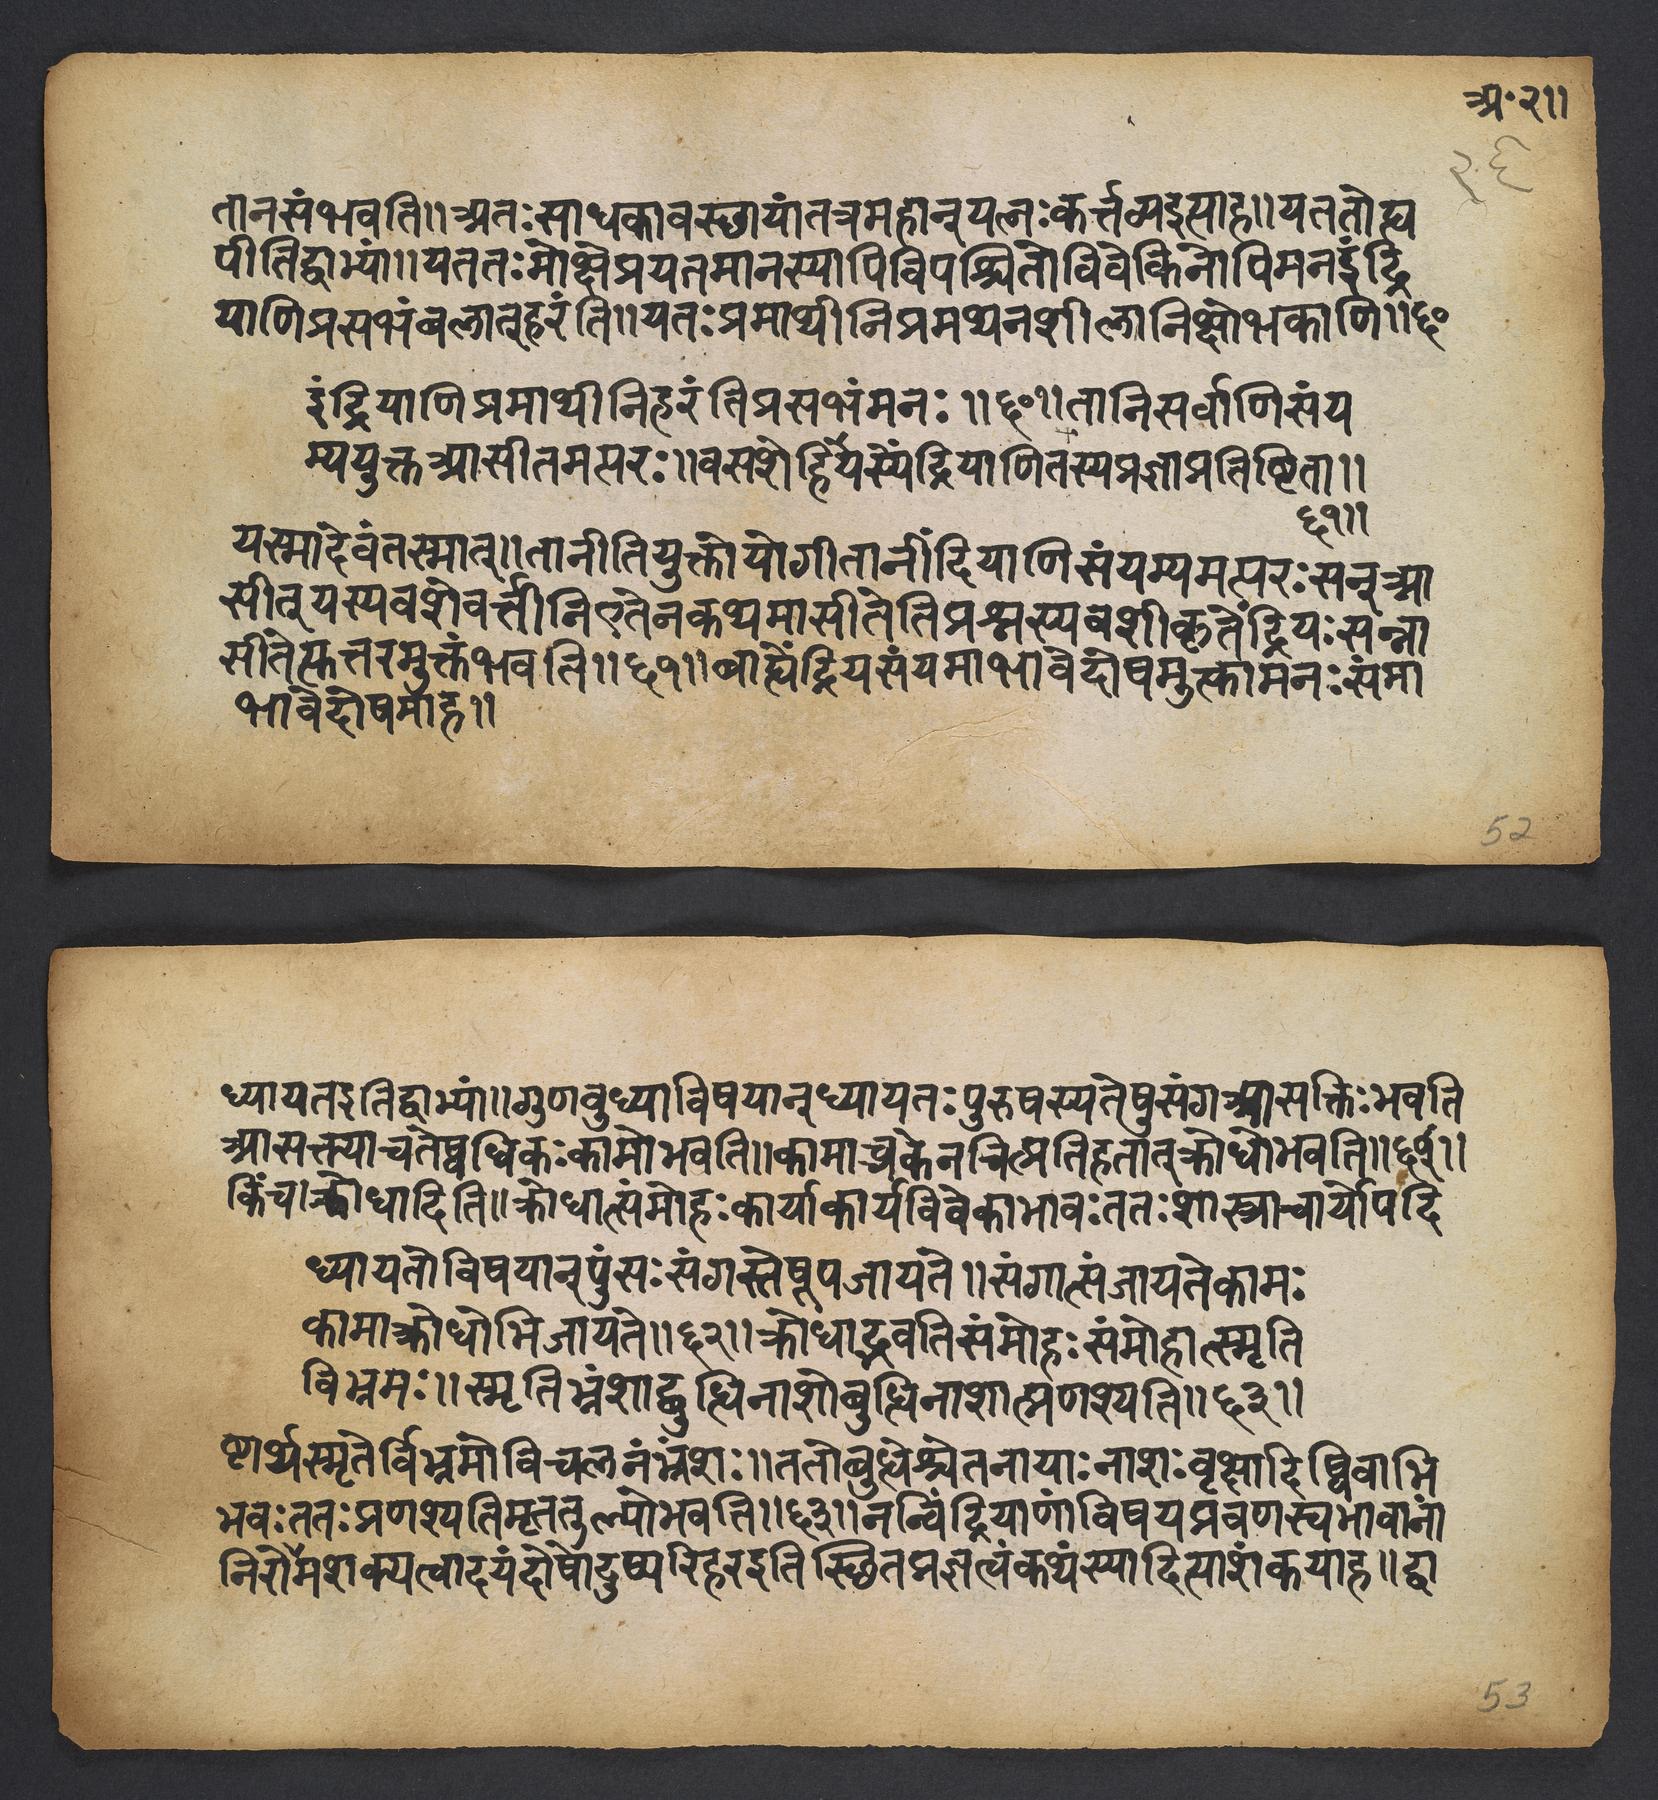 अ॰२॥
२६
तानसंभवति॥अतःसाधकावस्छायांतत्रमहान्यत्नःकर्त्तव्यइत्याह॥यततोह्य
पीतिद्वाभ्यां॥यततःमोक्षेप्रयतमानस्यापिविपश्चितोविवेकिनोपिमनइंद्रि
याणिप्रसभंबलात्हरंति॥यतःप्रमाथीनिप्रमथनशीलानिक्षोभकाणि॥६०
इंद्रियाणिप्रमाथीनिहरंतिप्रसभंमनः॥६०॥तानिसर्वाणिसंय
म्ययुक्तआसीतमत्परः॥वसशेहिर्यस्येंद्रियाणितस्यप्रज्ञाप्रतिष्टिता॥
६१॥
यस्मादेवंतस्मात्॥तानीतियुक्तोयोगीतानींदियाणिसंयम्यमत्परःसन्आ
सीत्यस्यवशेवर्त्तीनिएतेनकथमासीतेतिप्रश्नस्यवशीकृतेंद्रियःसन्ना
सीतेत्कत्तरमुक्तंभवति॥६१॥बाह्येंद्रियसंयमाभावेदोषमुत्कामनःसंमा
भावेदोषमाह॥
52
ध्यायतइतिद्वाभ्यां॥गुणबुध्याविषयान्ध्यायतःपुरुषस्यतेषुसंगआसक्तिःभवति
आसक्त्याचतेष्वधिकःकामोभवति॥कामाच्चकेनचित्प्रतिहतात्क्रोधोभवति॥६२॥
किंच।क्रोधादिति॥क्रोधात्संमोहःकार्याकार्यविवेकाभावःततःशास्त्राचार्योपदि
ध्यायतोविषयान्पुंसःसंगस्तेषूपजायते॥संगात्संजायतेकामः
कामाक्रोधोभिजायते॥६२॥क्रोधाद्भवतिसंमोहःसंमोहात्स्मृति
विभ्रमः॥स्मृतिभ्रंशाद्बुधिनाशोबुधिनाशात्प्रणश्यति॥६३॥
ष्टार्थस्मृतेर्विभ्रमोविचलनंभ्रंशः॥ततोबुधेश्चेतनायाःनाशःवृक्षादिष्विवाभि
भवःततःप्रणश्यतिमृततुल्योभवति॥६३॥नन्विंद्रियाणांविषयप्रवणस्वभावानां
निरोमशक्यत्वादयंदोषोदुष्परिहरइतिस्छितप्रज्ञत्वंकथंस्यादित्याशंकयाह॥द्वा
53